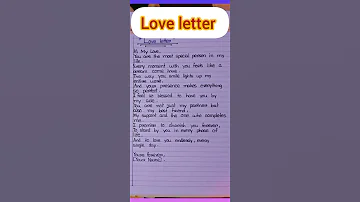 Love letter
Love letter
Hi My Love,
You are the most special person in my
life.
Every moment with you feels like a
dream come true.
The way you smile lights up my
entire world.
And your presence makes everything
so perfect.
I feel so blessed to have you by
my side.
You are not just my partner but
also my best friend.
My support and the one who completes
me.
I promise to cherish you forever,
To stand by you in every phase of
life.
And to love you endlessly, every
single day.
Yours forever,
[Your Name].